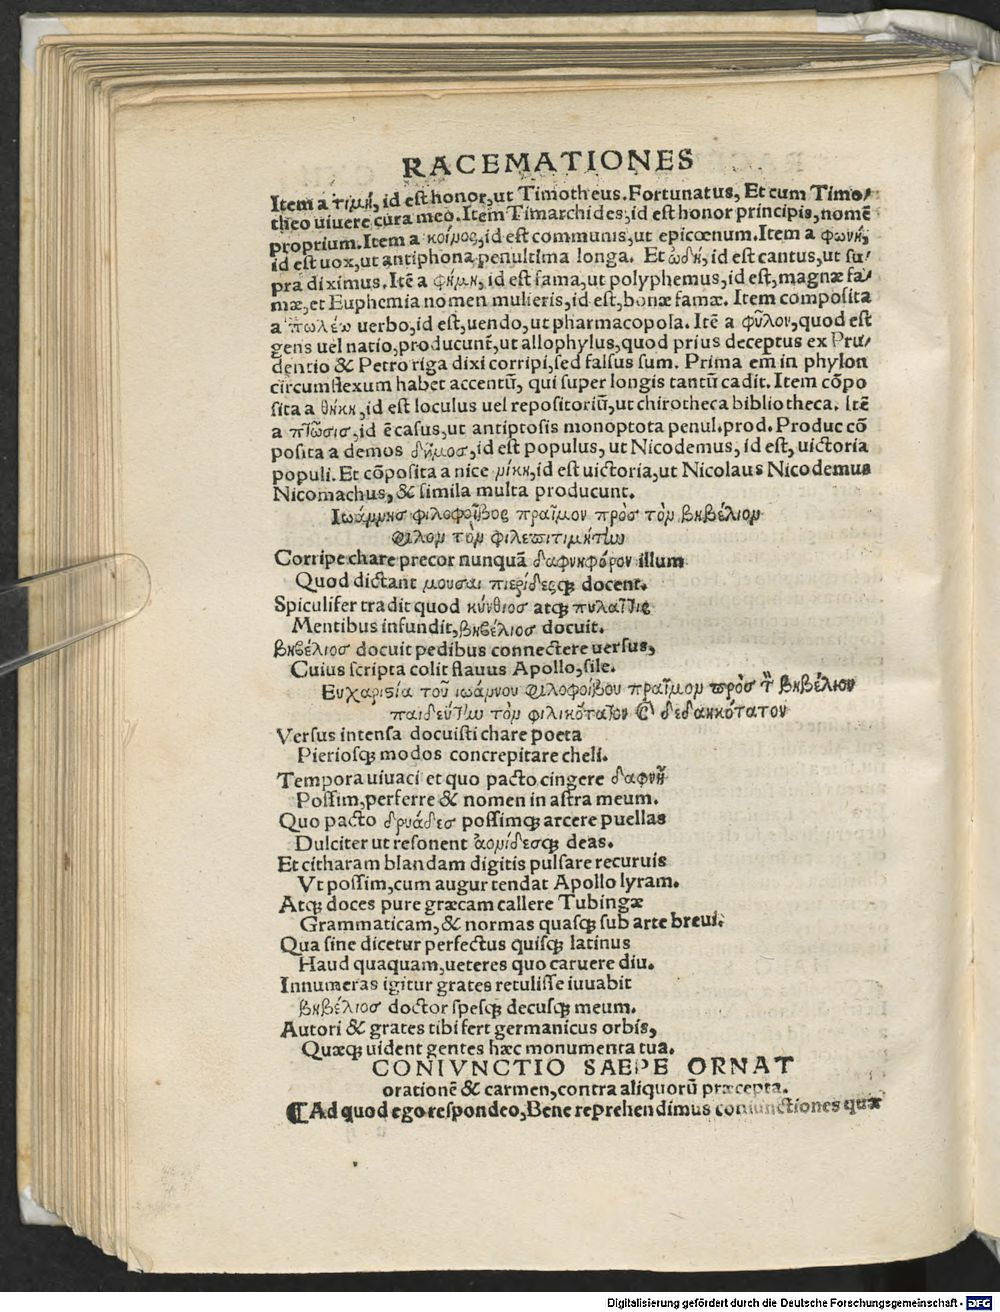 RACEMATIONES
Item a τιμή, id est honor, ut Timotheus. Fortunatus, Et cum Timo⸗
theo uiuere cura meo. Item Timarchides, id est honor principis, nomē
proprium. Item a κοίμος, id est communis, ut epicœnum. Item a φωνή,
id est uox, ut antiphona penultima longa. Et ὠδή, id est cantus, ut su⸗
pra diximus. Itē a φήμη, id est fama, ut polyphemus, id est, magnæ fa⸗
mæ, et Euphemia nomen mulieris, id est, bonæ famæ. Item composita
a πωλέω uerbo, id est, uendo, ut pharmacopola. Itē a φῦλον, quod est
gens uel natio, producunt, ut allophylus, quod prius deceptus ex Pru⸗
dentio & Petro riga dixi corripi, sed falsus sum. Prima em̄ in phylon
circumflexum habet accentū, qui super longis tantū cadit. Item cōpo
sita a θήκη, id est loculus uel repositoriū, ut chirotheca bibliotheca. Itē
a πτῶσισ, id ē casus, ut antiptosis monoptota penul. prod. Produc cō
posita a demos δῆμοσ, id est populus, ut Nicodemus, id est, uictoria
populi. Et cōposita a nice μίκη, id est uictoria, ut Nicolaus Nicodemus
Nicomachus, & simila multa producunt.
Ιωάμμησ φιλοφοῖβος πραῖμον πρὸσ τὸμ βηβέλιομ
φιλομ τὸμ φιλεπιτιμήτίω
Corripe chare precor nunquā δαφνηφόρον illum
Quod dictant μουσαι πιερίδεςq́ docent.
Spiculifer tradit quod κύνθιοσ atq́
Mentibus infundit, βηβέλιοσ docuit.
βηβέλιοσ docuit pedibus connectere uersus,
Cuius scripta colit flauus Apollo, sile.
Ευχαριςία τοῦ ιωάμνου φιλοφοίβου πραῖμομ πρὸσ τ̀ βηβέλιον
τὸμ φιλικότατον δεδακκότατον
Versus intensa docuisti chare poeta
Pieriosq́ modos concrepitare cheli.
Tempora uiuaci et quo pacto cingere δαφνῆ
Possim, perferre & nomen in astra meum.
Quo pacto δρυάδεσ possimq́ arcere puellas
Dulciter ut resonent ἀομίδεσq́ deas.
Et citharam blandam digitis pulsare recuruis
Vt possim, cum augur tendat Apollo lyram.
Atq́ doces pure græcam callere Tubingæ
Grammaticam, & normas quasq́ sub arte breui.
Qua sine dicetur perfectus quisq́ latinus
Haud quaquam, ueteres quo caruere diu.
Innumeras igitur grates retulisse iuuabit
βηβέλιοσ doctor spesq́ decusq́ meum.
Autori & grates tibi fert germanicus orbis,
Quæq́ uident gentes hæc monumenta tua.
CONIVNCTIO SAEPE ORNAT
orationē & carmen, contra aliquorū præcepta.
¶Ad quod ego respondeo, Bene reprehendimus coniunctiones quæ
Digitalisierung gefördert durch die Deutsche Forschungsgemeinschaft - DFG